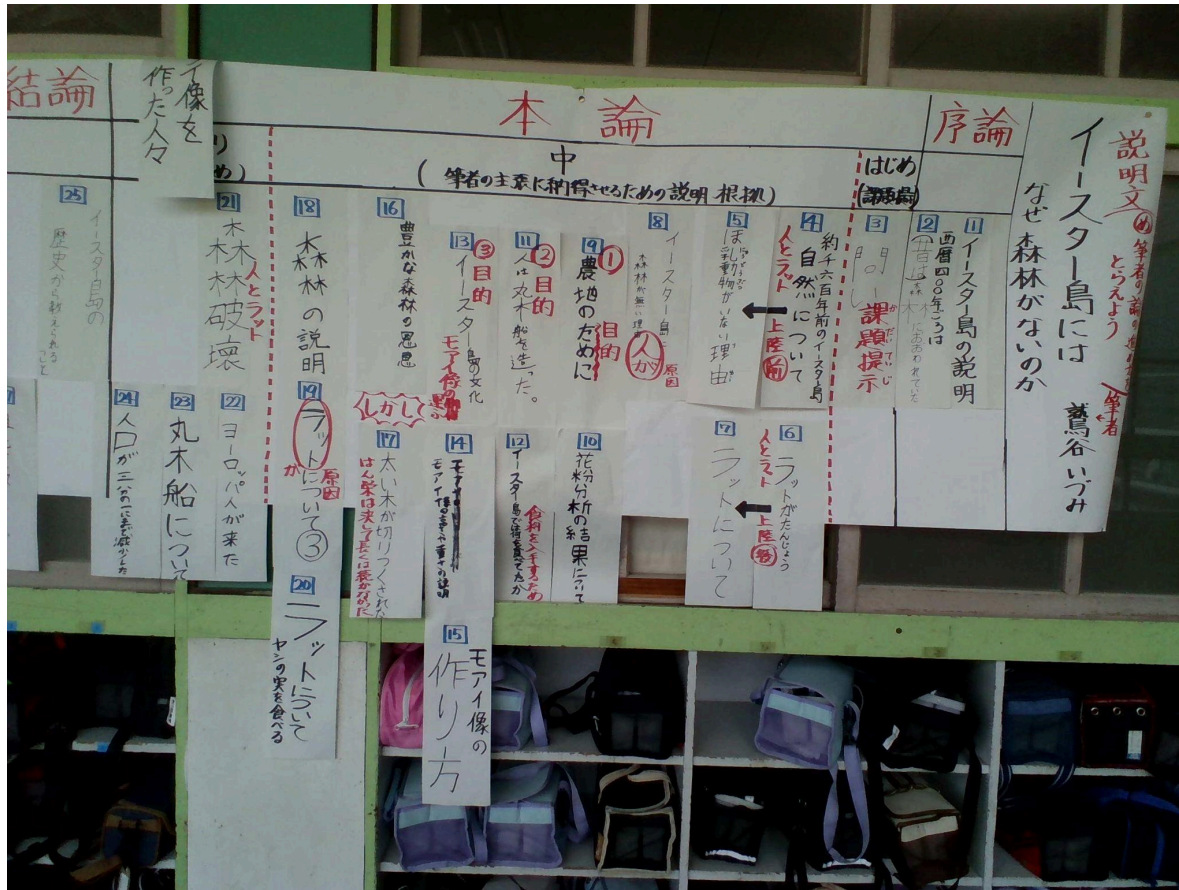 説明文
め 筆者の論の進め方を
とらえよう
イースター島には
なぜ森林がないのか
筆者
鷲谷いづみ
序論
本論
結論
はじめ
中
(筆者の主張に納得させるための説明 根拠)
イ像を
作った人々
1
イースター島の説明
西暦四〇〇年ごろは
2
昔は森林におおわれていた
3
問い
課題提示
かだいていじ
4
約千六百年前のイースター島
自然について
人とラット 上陸前
5
ほ乳動物がいない理由
6
ラットがたんじょう
人とラット 上陸後
7
ラットについて
8
イースター島に
森林が無い理由
人が
原因
9
①
農地のために
目的
10
花粉分析の結果について
11
②目的
人は丸木船を造った。
12
食料を入手するため
イースター島で何を食べてたか
13
③目的
イースター島の文化
14
モアイ像の大きさや重さの説明
15
モアイ像の
作り方
16
豊かな森林の恩恵
しかし
17
太い木が切りつくされた
はん栄は決して長くは続かなかった
18
森林の説明
19
ラットについて③
が
原因
20
ラットについて
ヤシの実を食べる
21
森林破壊
人とラット
22
ヨーロッパ人が来た
23
丸木船について
24
人口が三分の一にまで減少した
25
イースター島の
歴史から教えられる
こと